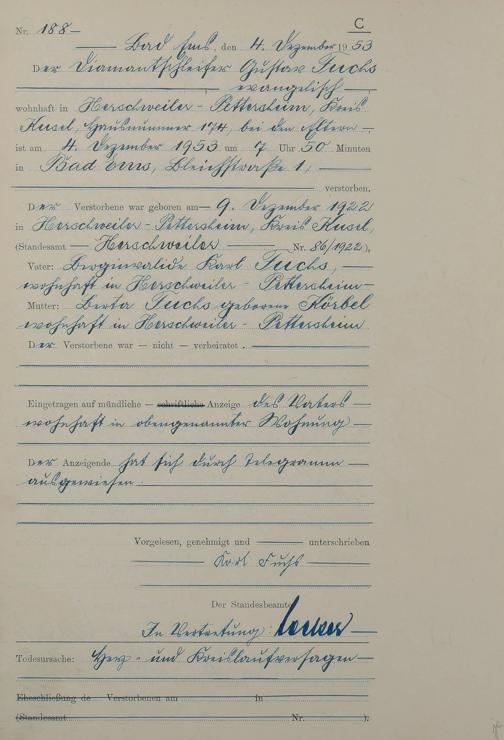 C
Nr. 188
Bad Ems, den 4. Dezember 1953
Der Diamantschleifer Gustav Fuchs
evangelisch,
wohnhaft in Herschweiler-Pettersheim, Kreis
Kusel, Hausnummer 174, bei den Eltern
ist am 4. Dezember 1953 um 7 Uhr 50 Minuten
in Bad Ems, Bleichstraße 1,
verstorben.
Der Verstorbene war geboren am 9. Dezember 1922
in Herschweiler-Pettersheim, Kreis Kusel,
(Standesamt Herschweiler Nr. 86/1922),
Vater: Berginvalide Karl Fuchs,
wohnhaft in Herschweiler-Pettersheim
Mutter: Berta Fuchs geborene Körbel
wohnhaft in Herschweiler-Pettersheim
Der Verstorbene war — nicht — verheiratet.
Eingetragen auf mündliche — schriftliche Anzeige des Vaters
wohnhaft in obengenannter Wohnung
Der Anzeigende hat sich durch Telegramm
ausgewiesen.
Vorgelesen, genehmigt und unterschrieben
Karl Fuchs
Der Standesbeamte
In Vertretung:
Todesursache: Herz- und Kreislaufversagen
Eheschließung de Verstorbenen am in
(Standesamt Nr. ).